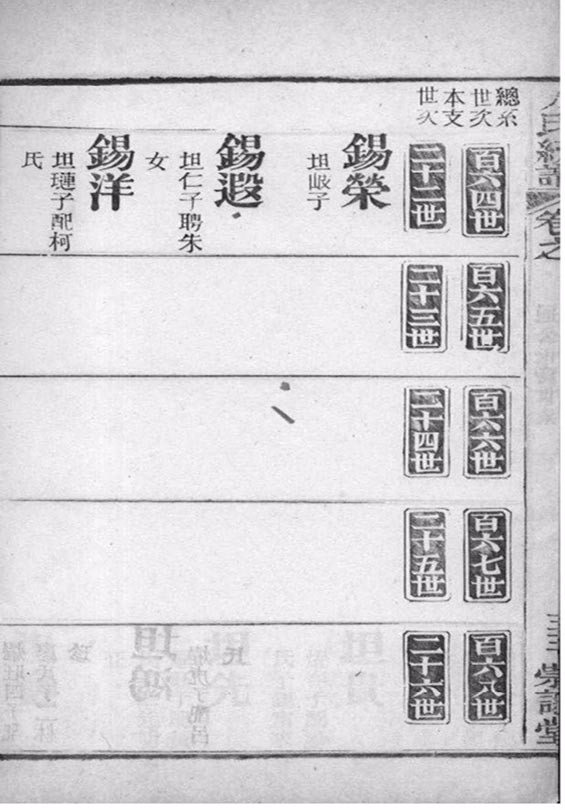 卷之
總系
世次
本支
世次
百六四世
二十二世
錫榮
坦岐子
錫遐
坦仁子聘朱
女
錫洋
坦璉子配柯
氏
百六五世
二十三世
百六六世
二十四世
百六七世
二十五世
百六八世
二十六世